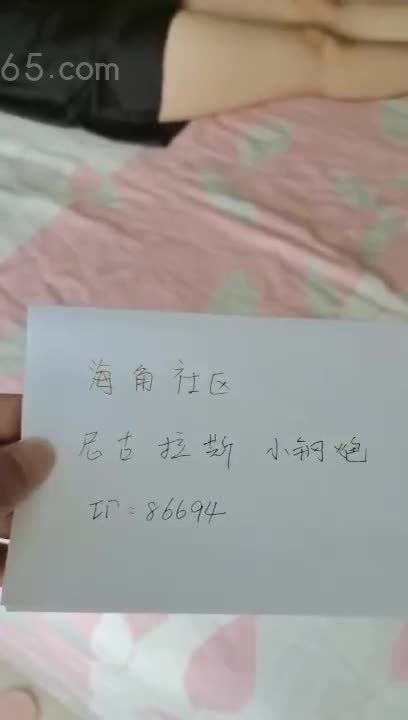 65.com
海角社区
尼古拉斯 小钢炮
ID：86694